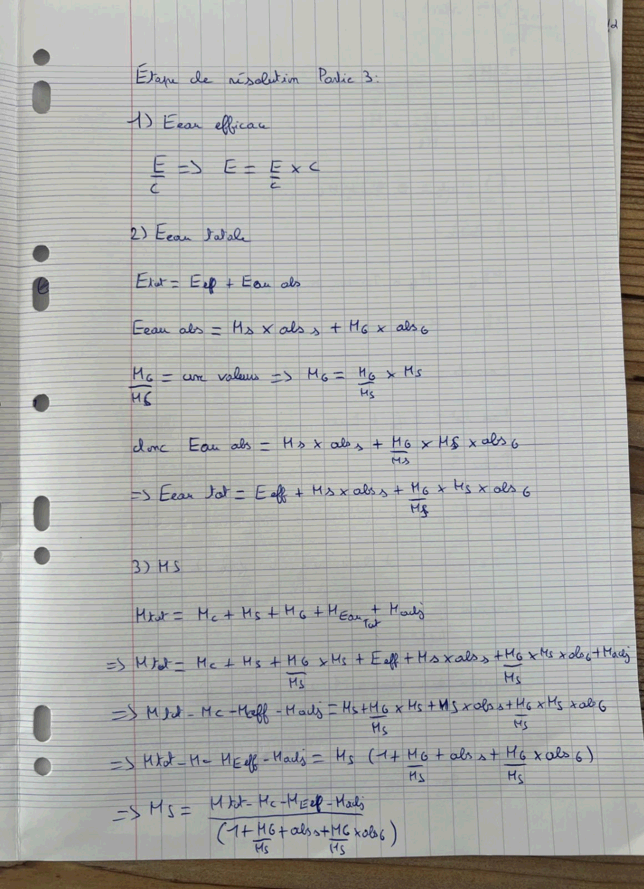 Étape de résolution Partie 3:
1) Eeau efficace
E/C => E = E/C × C
2) Eeau totale
Etot = Eeff + Eau abs
Eeau abs = Ms × abs s + MG × abs G
MG/MS = une valeur => MG = MG/MS × MS
donc Eau abs = Ms × abs s + MG/MS × MS × abs G
=> Eeau tot = Eeff + Ms × abs s + MG/MS × MS × abs G
3) MS
Mtot = Mc + MS + MG + MEau Tot + Madj
=> Mtot = Mc + MS + MG/MS × MS + Eeff + Ms × abs s + MG/MS × MS × abs G + Madj
=> Mtot - Mc - Meff - Madj = MS + MG/MS × MS + MS × abs s + MG/MS × MS × abs G
=> Mtot - M - MEeff - Madj = MS (1 + MG/MS + abs s + MG/MS × abs G)
=> MS = Mtot - Mc - MEeff - Madj / (1 + MG/MS + abs s + MG/MS × abs G)